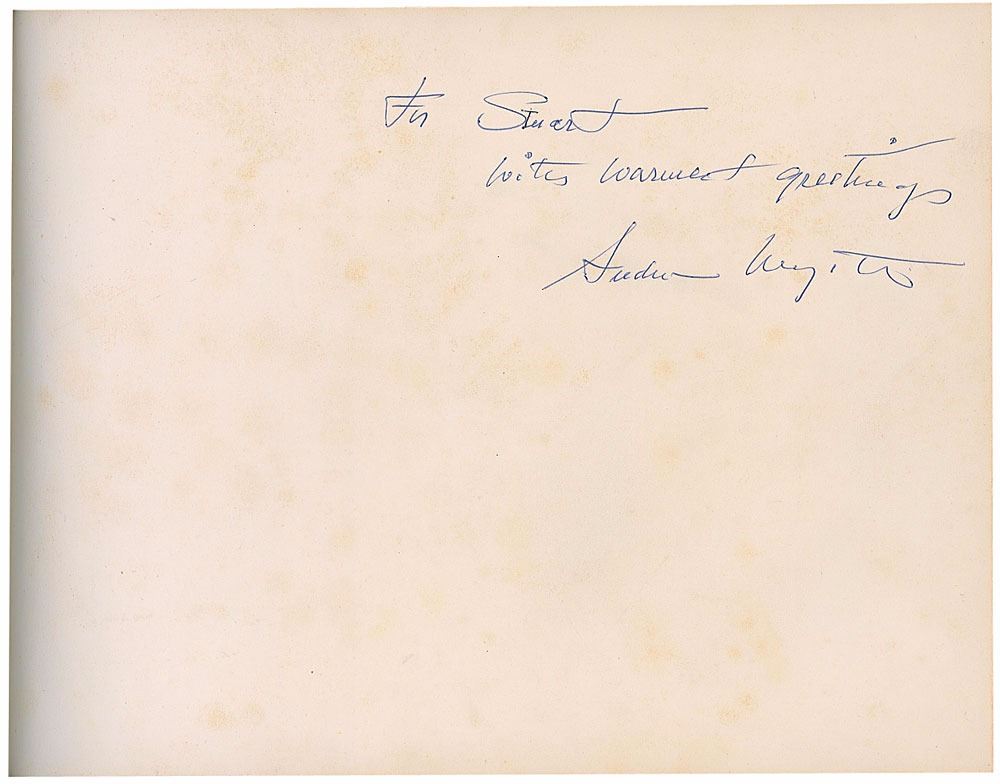 For Stuart
with warmest greetings
Andrew Wyeth